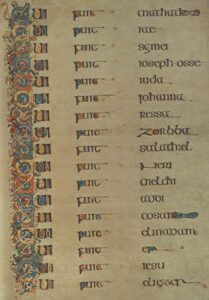 Qui fuit
Qui fuit
Qui fuit semei
Qui fuit ioseph osse
Qui fuit iuda
Qui fuit iohanna
Qui fuit ressa
Qui fuit zorbba
Qui fuit salathel
Qui fuit neri
Qui fuit melchi
Qui fuit addi
Qui fuit cosam
Qui fuit elmadam
Qui fuit er
Qui fuit iesu
Qui fuit eliezer